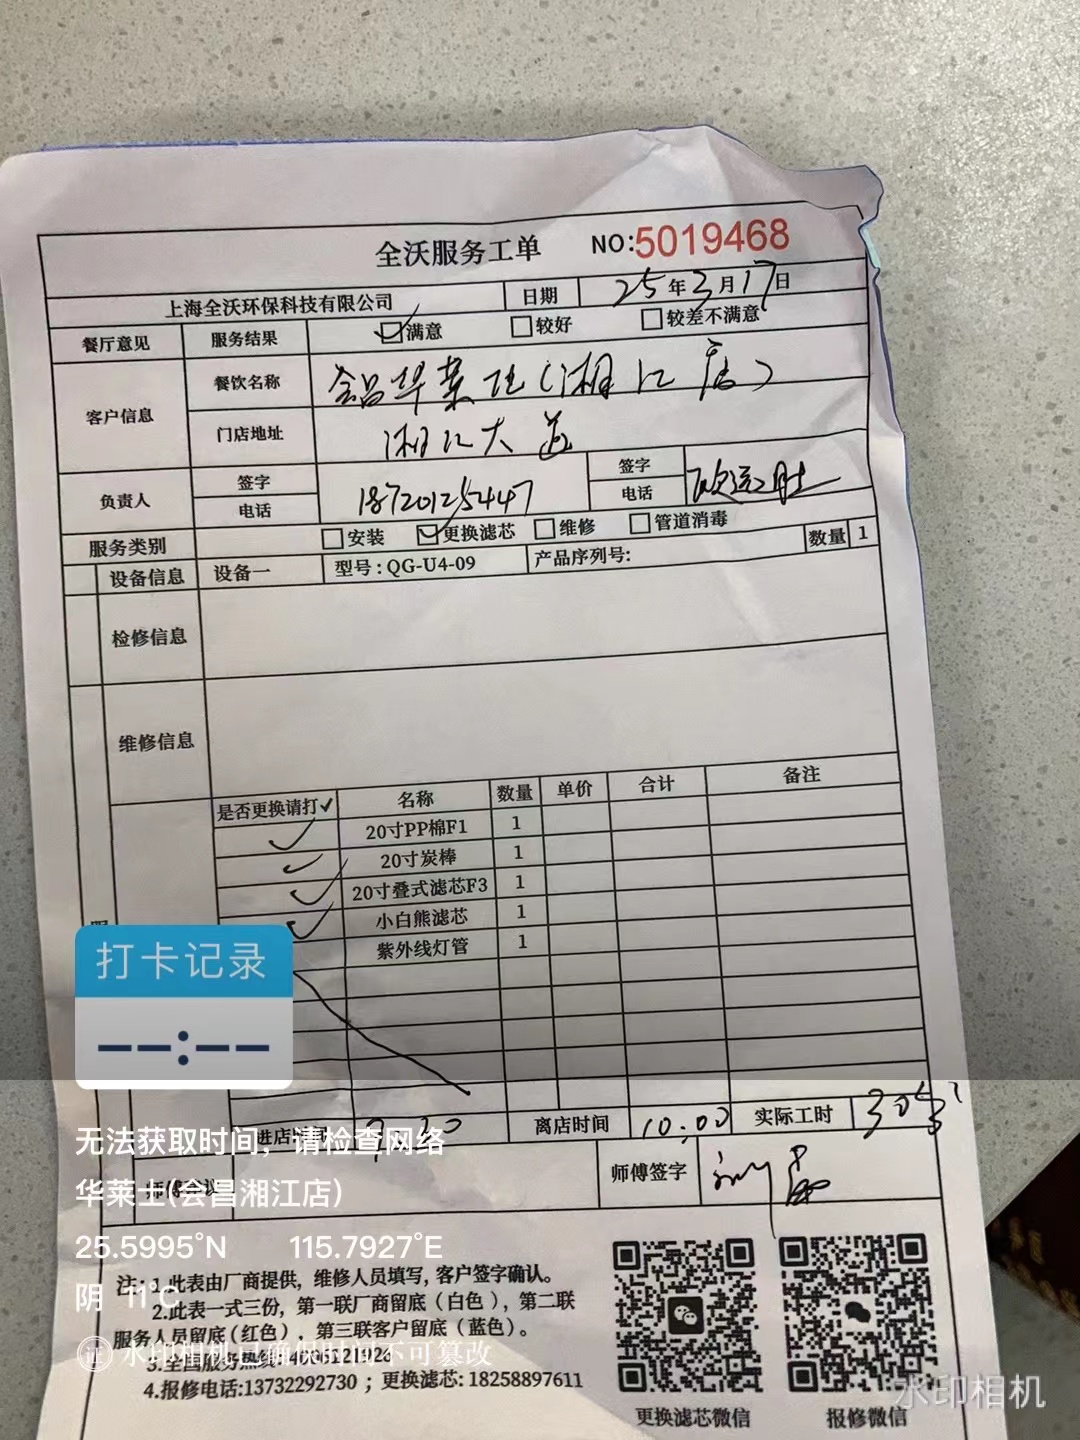 全沃服务工单 NO:5019468
上海全沃环保科技有限公司 日期 25年3月17日
餐厅意见 服务结果 满意 较好 较差不满意
客户信息 餐饮名称 会昌华莱士(湘江店)
门店地址 湘江大道
负责人 签字 电话 18720125447 签字 电话
服务类别 安装 更换滤芯 维修 管道消毒
设备信息 设备一 型号:QG-U4-09 产品序列号: 数量 1
检修信息
维修信息
是否更换请打✓ 名称 数量 单价 合计 备注
✓ 20寸PP棉F1 1
✓ 20寸炭棒 1
✓ 20寸叠式滤芯F3 1
✓ 小白熊滤芯 1
紫外线灯管 1
打卡记录
--:--
进店 离店时间 10:00 实际工时
无法获取时间，请检查网络
师傅签字
华莱士(会昌湘江店)
25.5995°N 115.7927°E
阴 11°C
注：1.此表由厂商提供，维修人员填写，客户签字确认。
2.此表一式三份，第一联厂商留底（白色），第二联
服务人员留底(红色)，第三联客户留底（蓝色）。
水印相机已确保时间不可篡改
3.全国服务热线
4.报修电话:13732292730；更换滤芯: 18258897611
更换滤芯微信 报修微信
水印相机